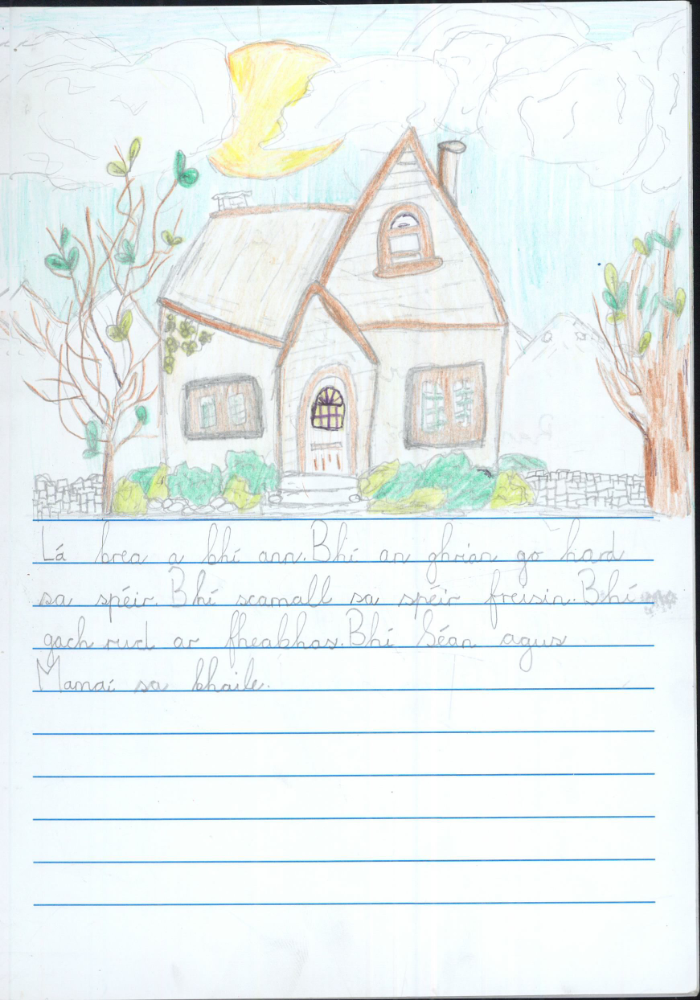 Lá brea a bhí ann. Bhí an ghrian go hard
sa spéir. Bhí scamall sa spéir freisin. Bhí
gach rud ar fheabhas. Bhí Seán agus
Mamaí sa bhaile.